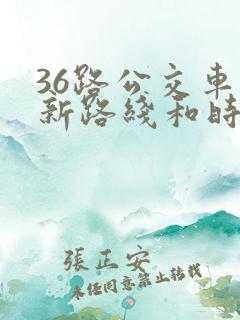 36路公交車
新路綫和時
張正安
未經同意禁止轉載